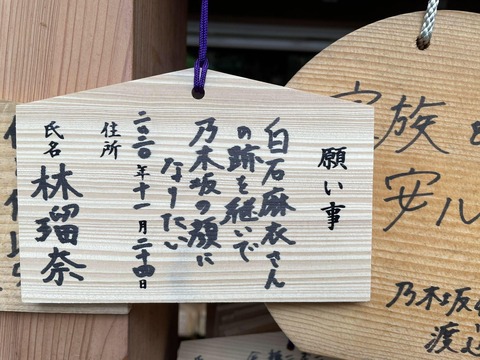 願い事
白石麻衣さん
の跡を継いで
乃木坂の顔に
なりたい
二〇二〇年十一月二十四日
住所
氏名 林瑠奈
家族
安ル
乃木坂
渡辺